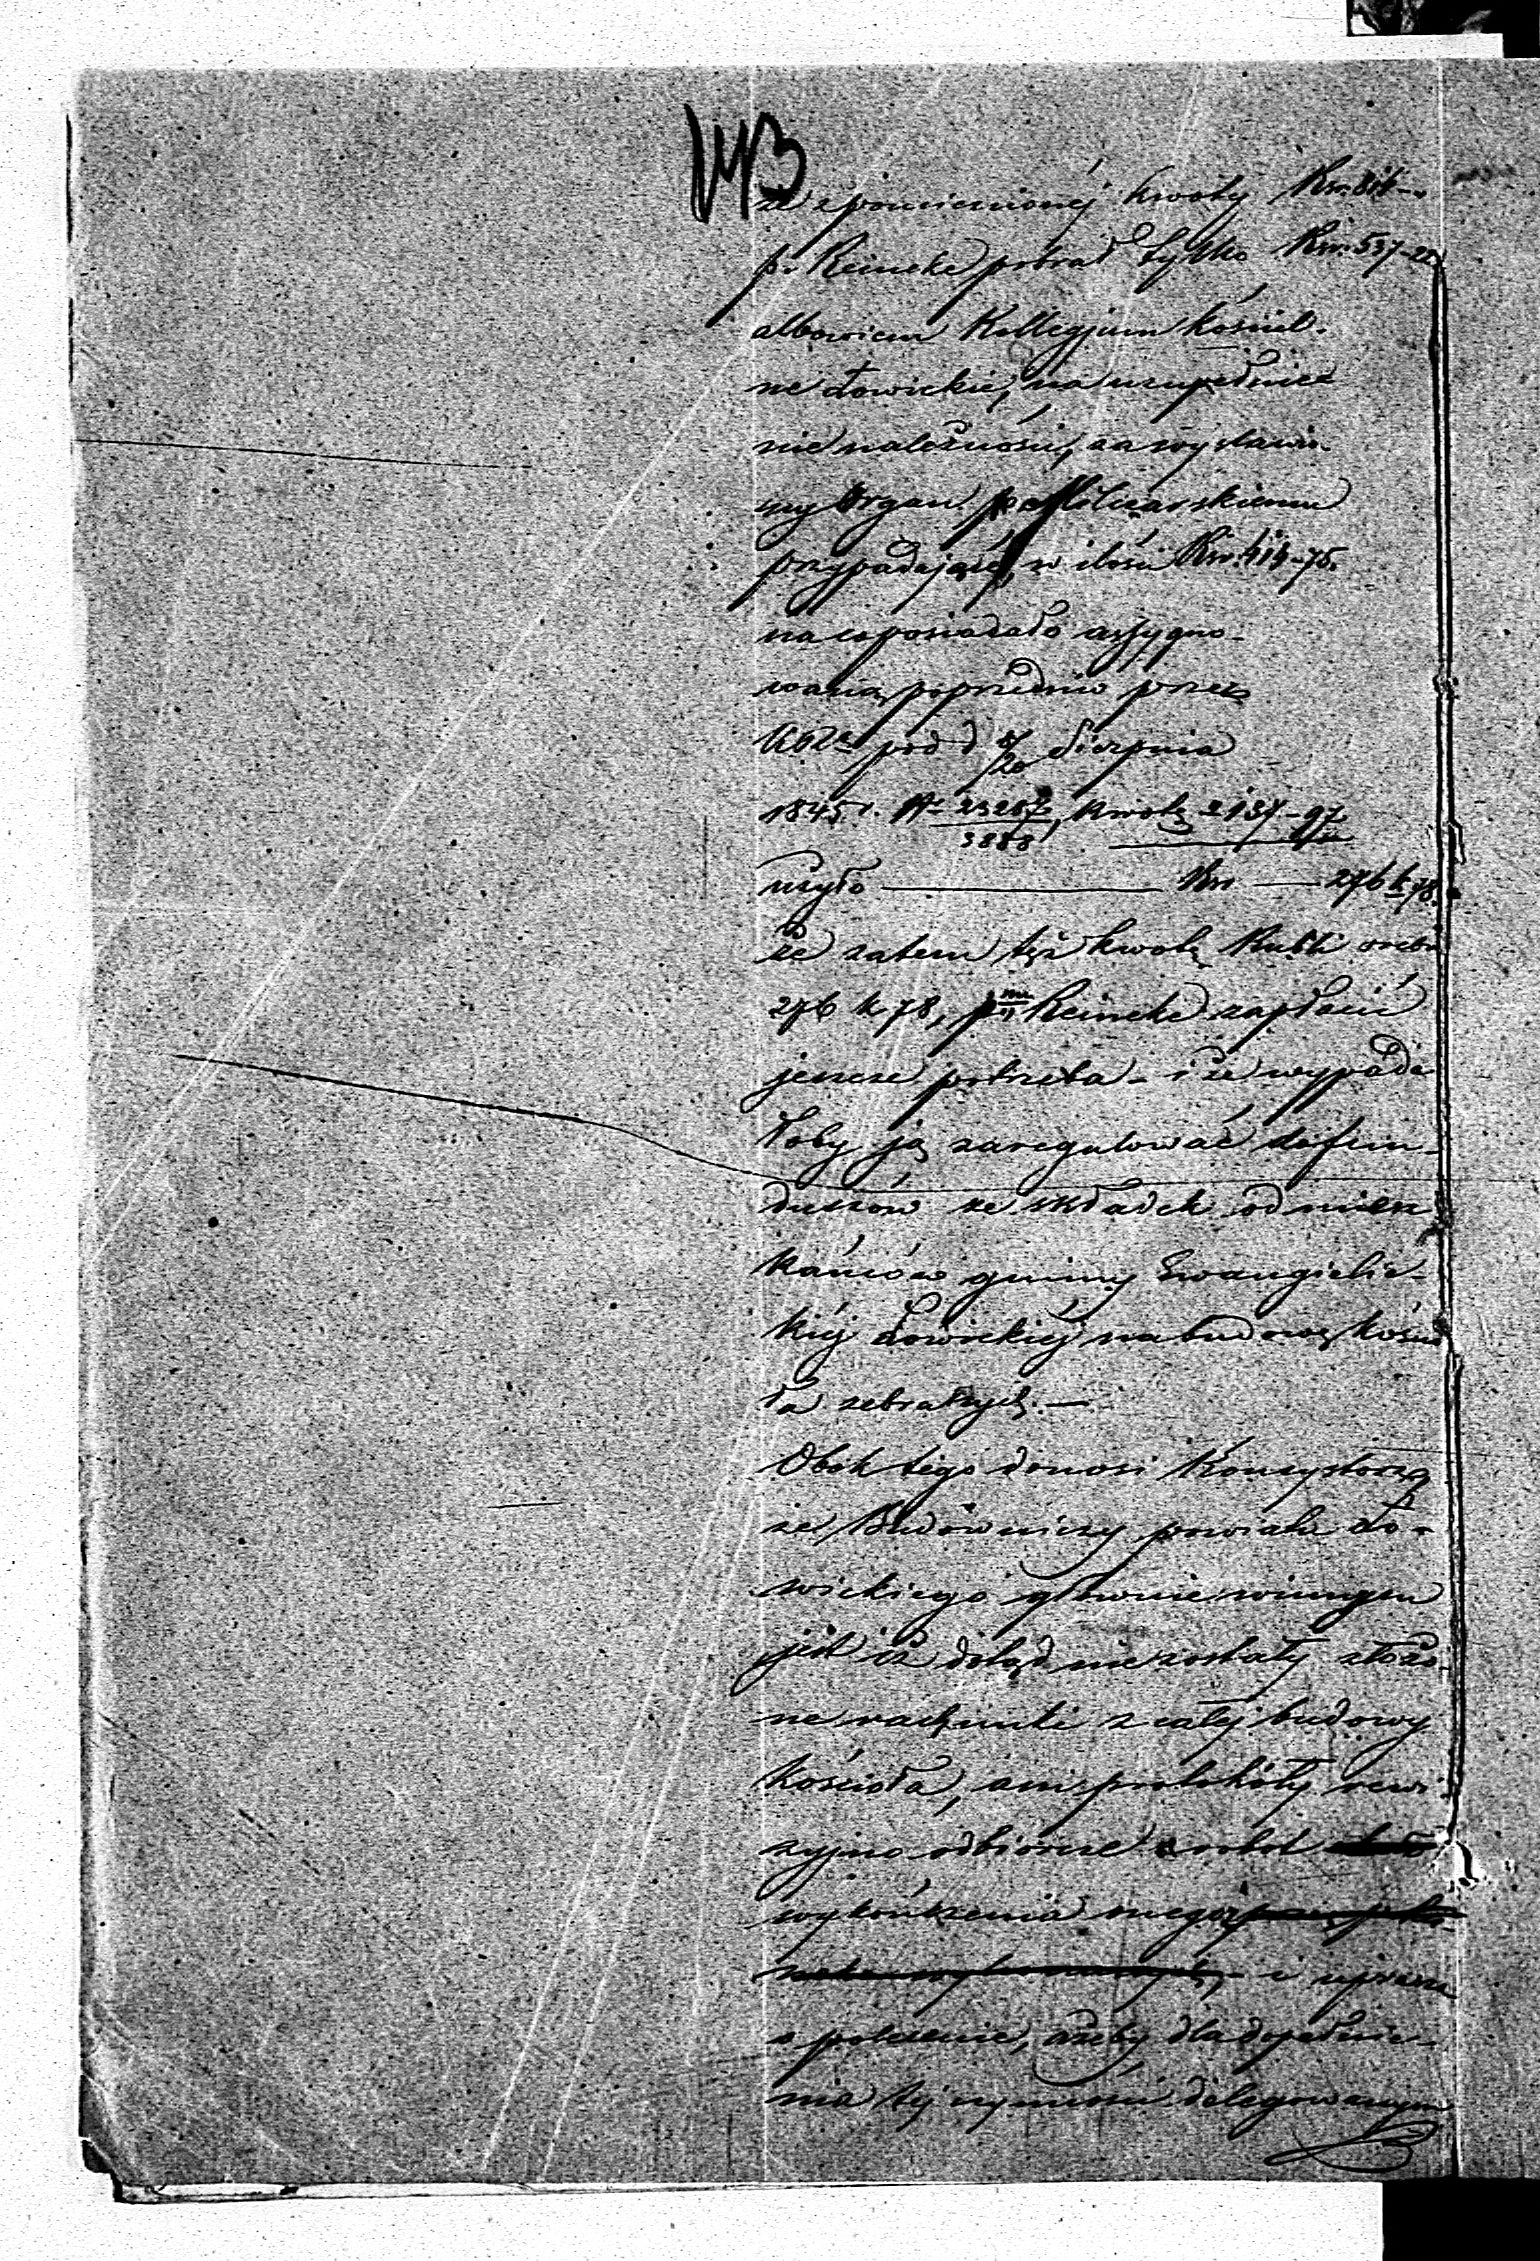 143
że z pomienionéj kwoty Rsr. 814 —
p. Reineke pobrał tylko Rsr. 537-22
albowiem Kollegjum kościel-
ne Łowickie, na uzupełnie
nie należności, za wystawio-
ny Organ
przypadającéj, w ilości Rsr. 414-75.
na co posiadało assygno-
waną poprzednio przez
pod d 8/20 Sierpnia
1845 r. N 23287/3888, kwotę 2137-97
użyło — Rsr — 276 k 78.
że zatem też kwotę Rubli srebr
276 k 78, p Reineke zapłacić
jeszcze potrzeba — i że wypada
łoby ją zaregulować z fun-
duszów ze składek od miesz
kańców gminy Ewangielic-
kiéj Łowickiéj na budowę kościo
ła zebranych. —
Obok tego donosi Konsystorz
że Budowniczy powiatu Ło-
wickiego głównie winnym
jest iż dotąd nie zostały złożo-
ne rachunki z całej budowy
kościoła, ani protokóły rewi
zyjno odbiorcze z robót
wykończenia niego
i uprasza
o polecenie, ażeby dla dopełnie-
nia tej czynności delegowanym